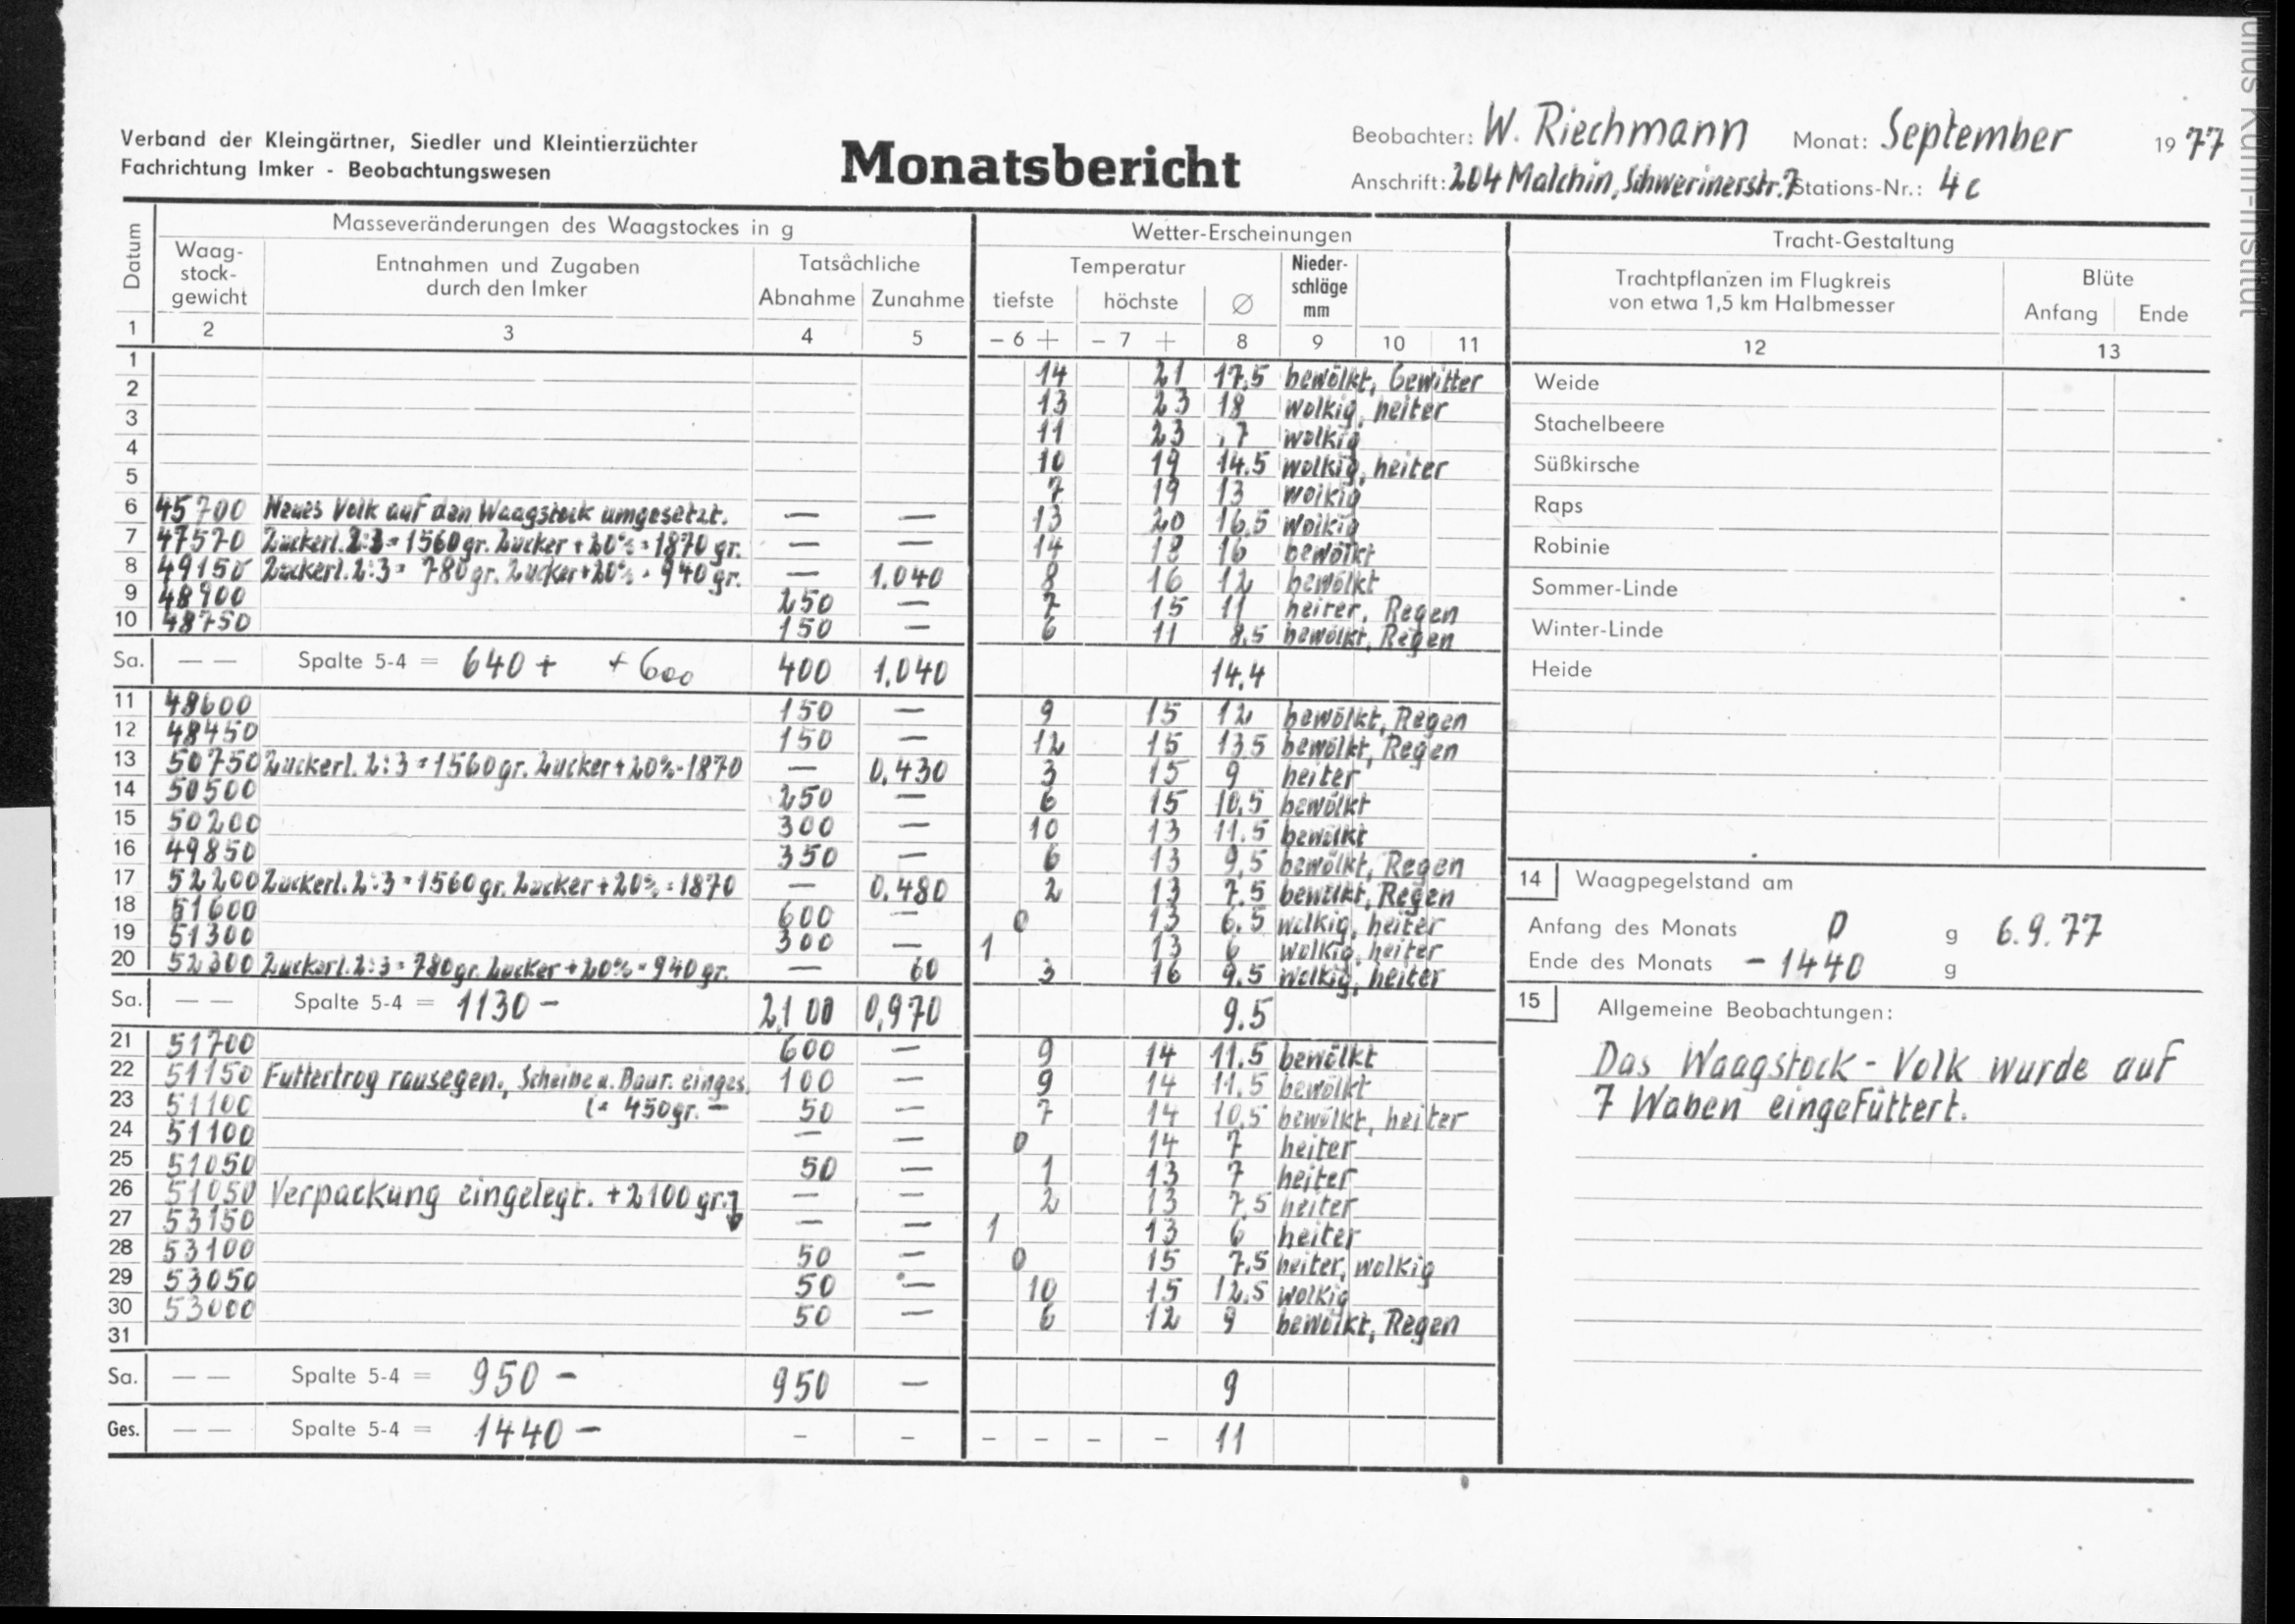 Julius Kühn-Institut
Verband der Kleingärtner, Siedler und Kleintierzüchter
Fachrichtung Imker - Beobachtungswesen
Monatsbericht
Beobachter: W. Riechmann Monat: September 1977
Anschrift: 204 Malchin, Schwerinerstr. 7 Stations-Nr.: 4c
Datum
Masseveränderungen des Waagstockes in g
Wetter-Erscheinungen
Tracht-Gestaltung
Waag-
stock-
gewicht
Entnahmen und Zugaben
durch den Imker
Tatsächliche
Abnahme Zunahme
Temperatur
tiefste höchste ∅
Nieder-
schläge
mm
Trachtpflanzen im Flugkreis
von etwa 1,5 km Halbmesser
Blüte
Anfang Ende
1 2 3 4 5 - 6 + - 7 + 8 9 10 11 12 13
1 14 21 17,5 bewölkt, Gewitter
2 13 23 18 wolkig, heiter
3 11 23 7 wolkig
4 10 19 14.5 wolkig, heiter
5 7 19 13 wolkig
6 45700 Neues Volk auf den Waagstock umgesetzt. — — 13 20 16,5 wolkig
7 47570 Zuckerl. 2:3 = 1560 gr. Zucker + 20% = 1870 gr. — — 14 18 16 bewölkt
8 49150 Zuckerl. 2:3 = 780 gr. Zucker + 20% = 940 gr. — 1.040 8 16 12 bewölkt
9 48900 250 — 7 15 11 heirer, Regen
10 48750 150 — 6 11 8,5 bewölkt, Regen
Sa. — — Spalte 5-4 = 640 + + 600 400 1.040 14,4
11 48600 150 — 9 15 12 bewölkt, Regen
12 48450 150 — 12 15 13,5 bewölkt, Regen
13 50750 Zuckerl. 2:3 = 1560 gr. Zucker + 20% = 1870 — 0,430 3 15 9 heiter
14 50500 250 — 6 15 10,5 bewölkt
15 50200 300 — 10 13 11.5 bewölkt
16 49850 350 — 6 13 9,5 bewölkt, Regen
17 52200 Zuckerl. 2:3 = 1560 gr. Zucker + 20% = 1870 — 0.480 2 13 7.5 bewölkt, Regen
18 51600 600 — 0 13 6.5 wolkig, heiter
19 51300 300 — 1 13 6 wolkig, heiter
20 52300 Zuckerl. 2:3 = 780 gr. Zucker + 20% = 940 gr. — 60 3 16 9,5 wolkig, heiter
Sa. — — Spalte 5-4 = 1130 - 2100 0,970 9.5
21 51700 600 — 9 14 11.5 bewölkt
22 51150 Futtertrog rausegen., Scheibe u. Baur. einges. 100 — 9 14 11,5 bewölkt
23 51100 (= 450 gr. - 50 — 7 14 10,5 bewölkt, heiter
24 51100 — — 0 14 7 heiter
25 51050 50 — 1 13 7 heiter
26 51050 Verpackung eingelegt. + 2100 gr. — — 2 13 7,5 heiter
27 53150 — — 1 13 6 heiter
28 53100 50 — 0 15 7,5 heiter, wolkig
29 53050 50 — 10 15 12,5 wolkig
30 53000 50 — 6 12 9 bewölkt, Regen
31
Sa. — — Spalte 5-4 = 950 - 950 — 9
Ges. — — Spalte 5-4 = 1440 - - - - - - - 11
Weide
Stachelbeere
Süßkirsche
Raps
Robinie
Sommer-Linde
Winter-Linde
Heide
14 Waagpegelstand am
Anfang des Monats 0 g 6.9.77
Ende des Monats - 1440 g
15 Allgemeine Beobachtungen:
Das Waagstock-Volk wurde auf
7 Waben eingefüttert.